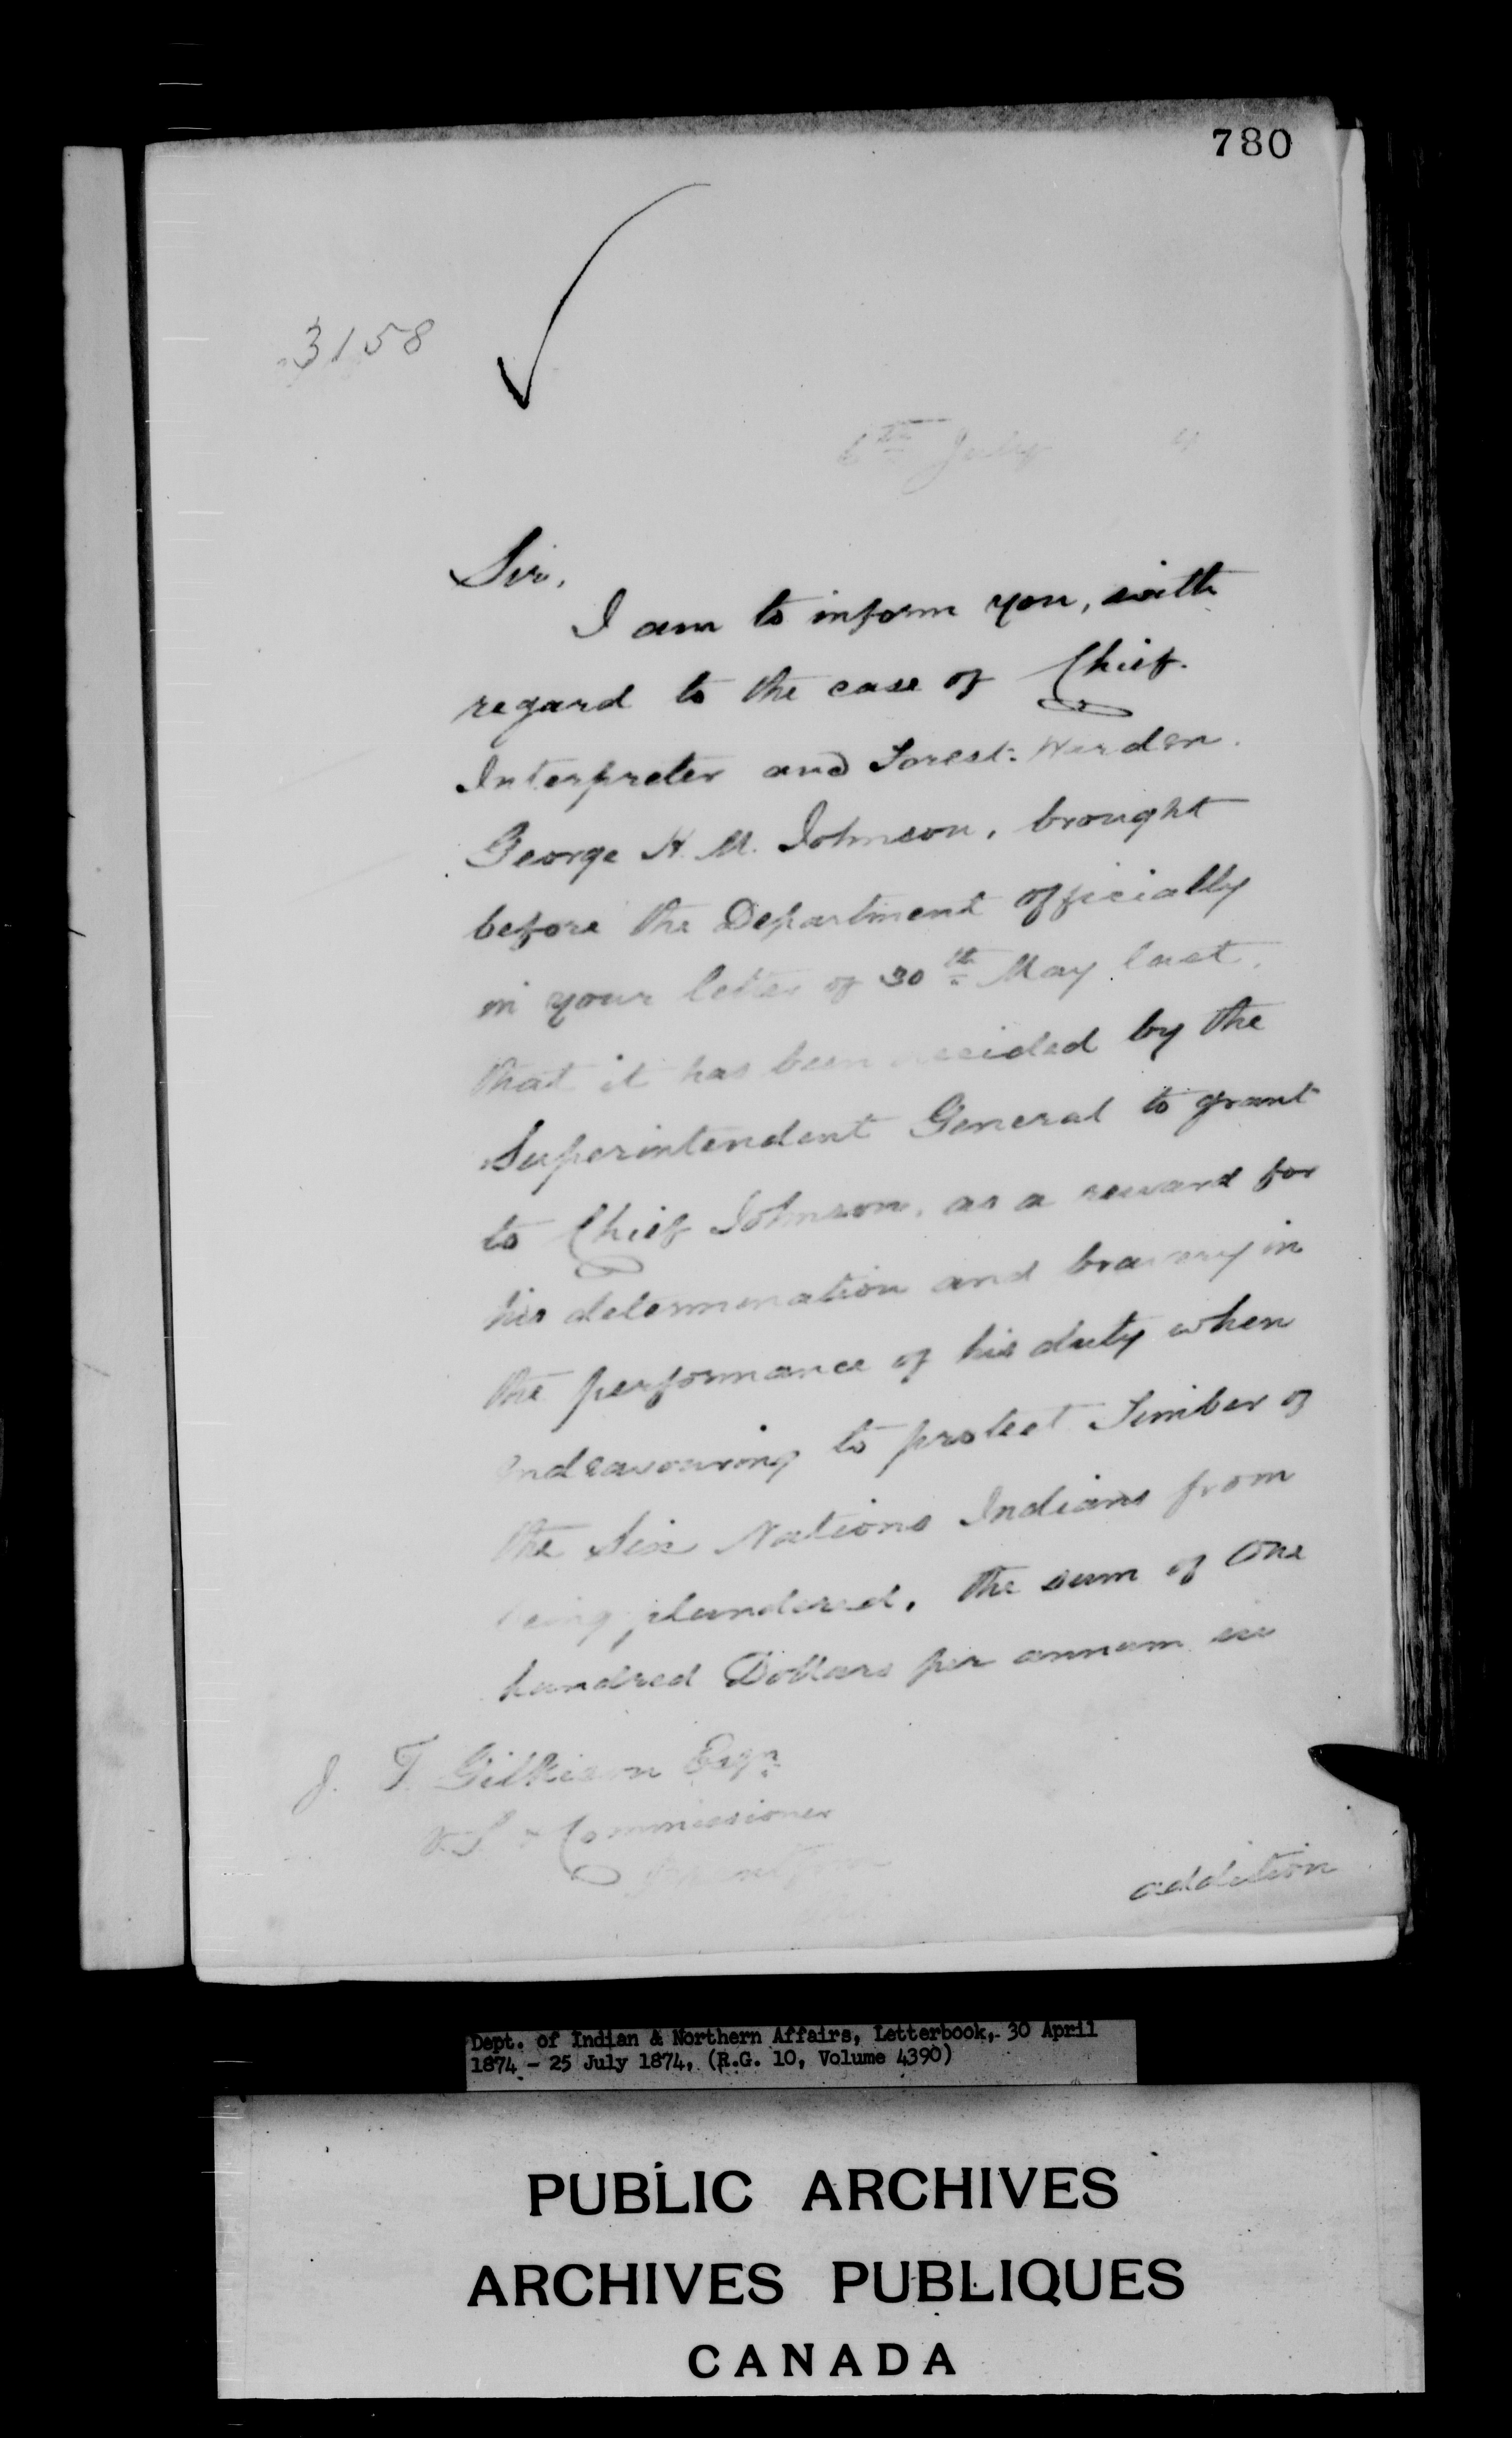 780
3158
6th July 4
Sir,
I am to inform you, with
regard to the case of Chief.
Interpreter and Forest-Warden.
George H. M. Johnson, brought
before the Department officially
in your letter of 30th May last.
that it has been decided by the
Superintendent General to grant
to Chief Johnson, as a reward for
his determination and bravery in
the performance of his duty when
endeavouring to protect Timber of
the Six Nations Indians from
being plundered, the sum of One
hundred Dollars per annum in
J. T. Gilkison Esqr.
V. S. & Commissioner
Brantford
addition
Dept. of Indian & Northern Affairs, Letterbook, 30 April
1874 - 25 July 1874, (R.G. 10, Volume 4390)
PUBLIC ARCHIVES
ARCHIVES PUBLIQUES
CANADA